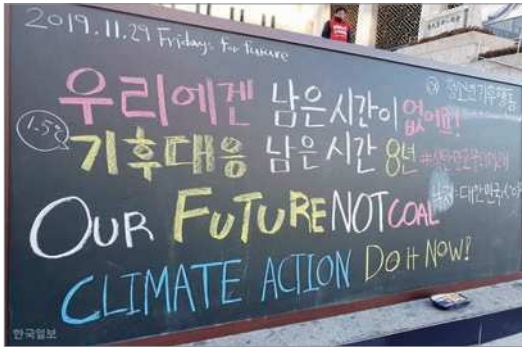 2019.11.29 Fridays for future
우리에겐 남은 시간이 없어요!
1.5℃
기후대응 남은 시간 8년
OUR FUTURE NOT COAL
CLIMATE ACTION DO IT NOW!
한국일보